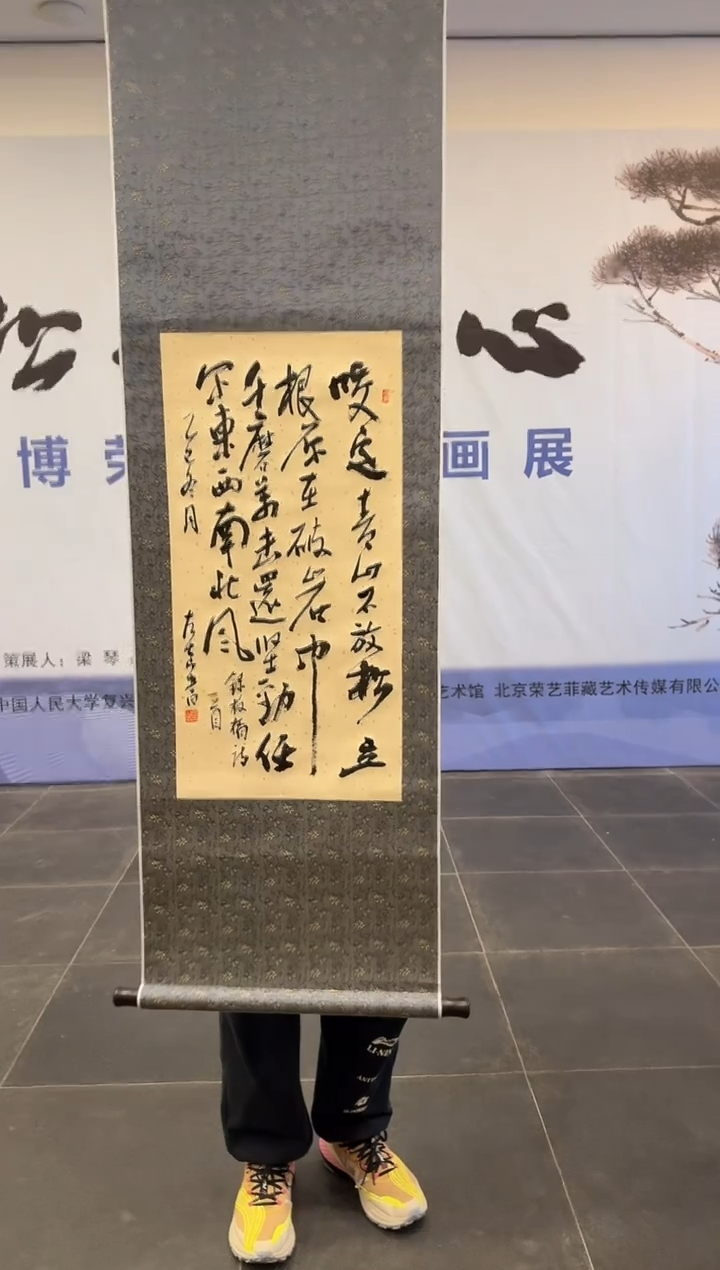 松 心
博 画展
咬定青山不放松立
根原在破岩中
千磨萬击還坚劲任
尔東西南北风
録板橋詩
一首
乙巳冬月
策展人：梁 琴
中国人民大学复兴
艺术馆 北京荣艺菲藏艺术传媒有限公